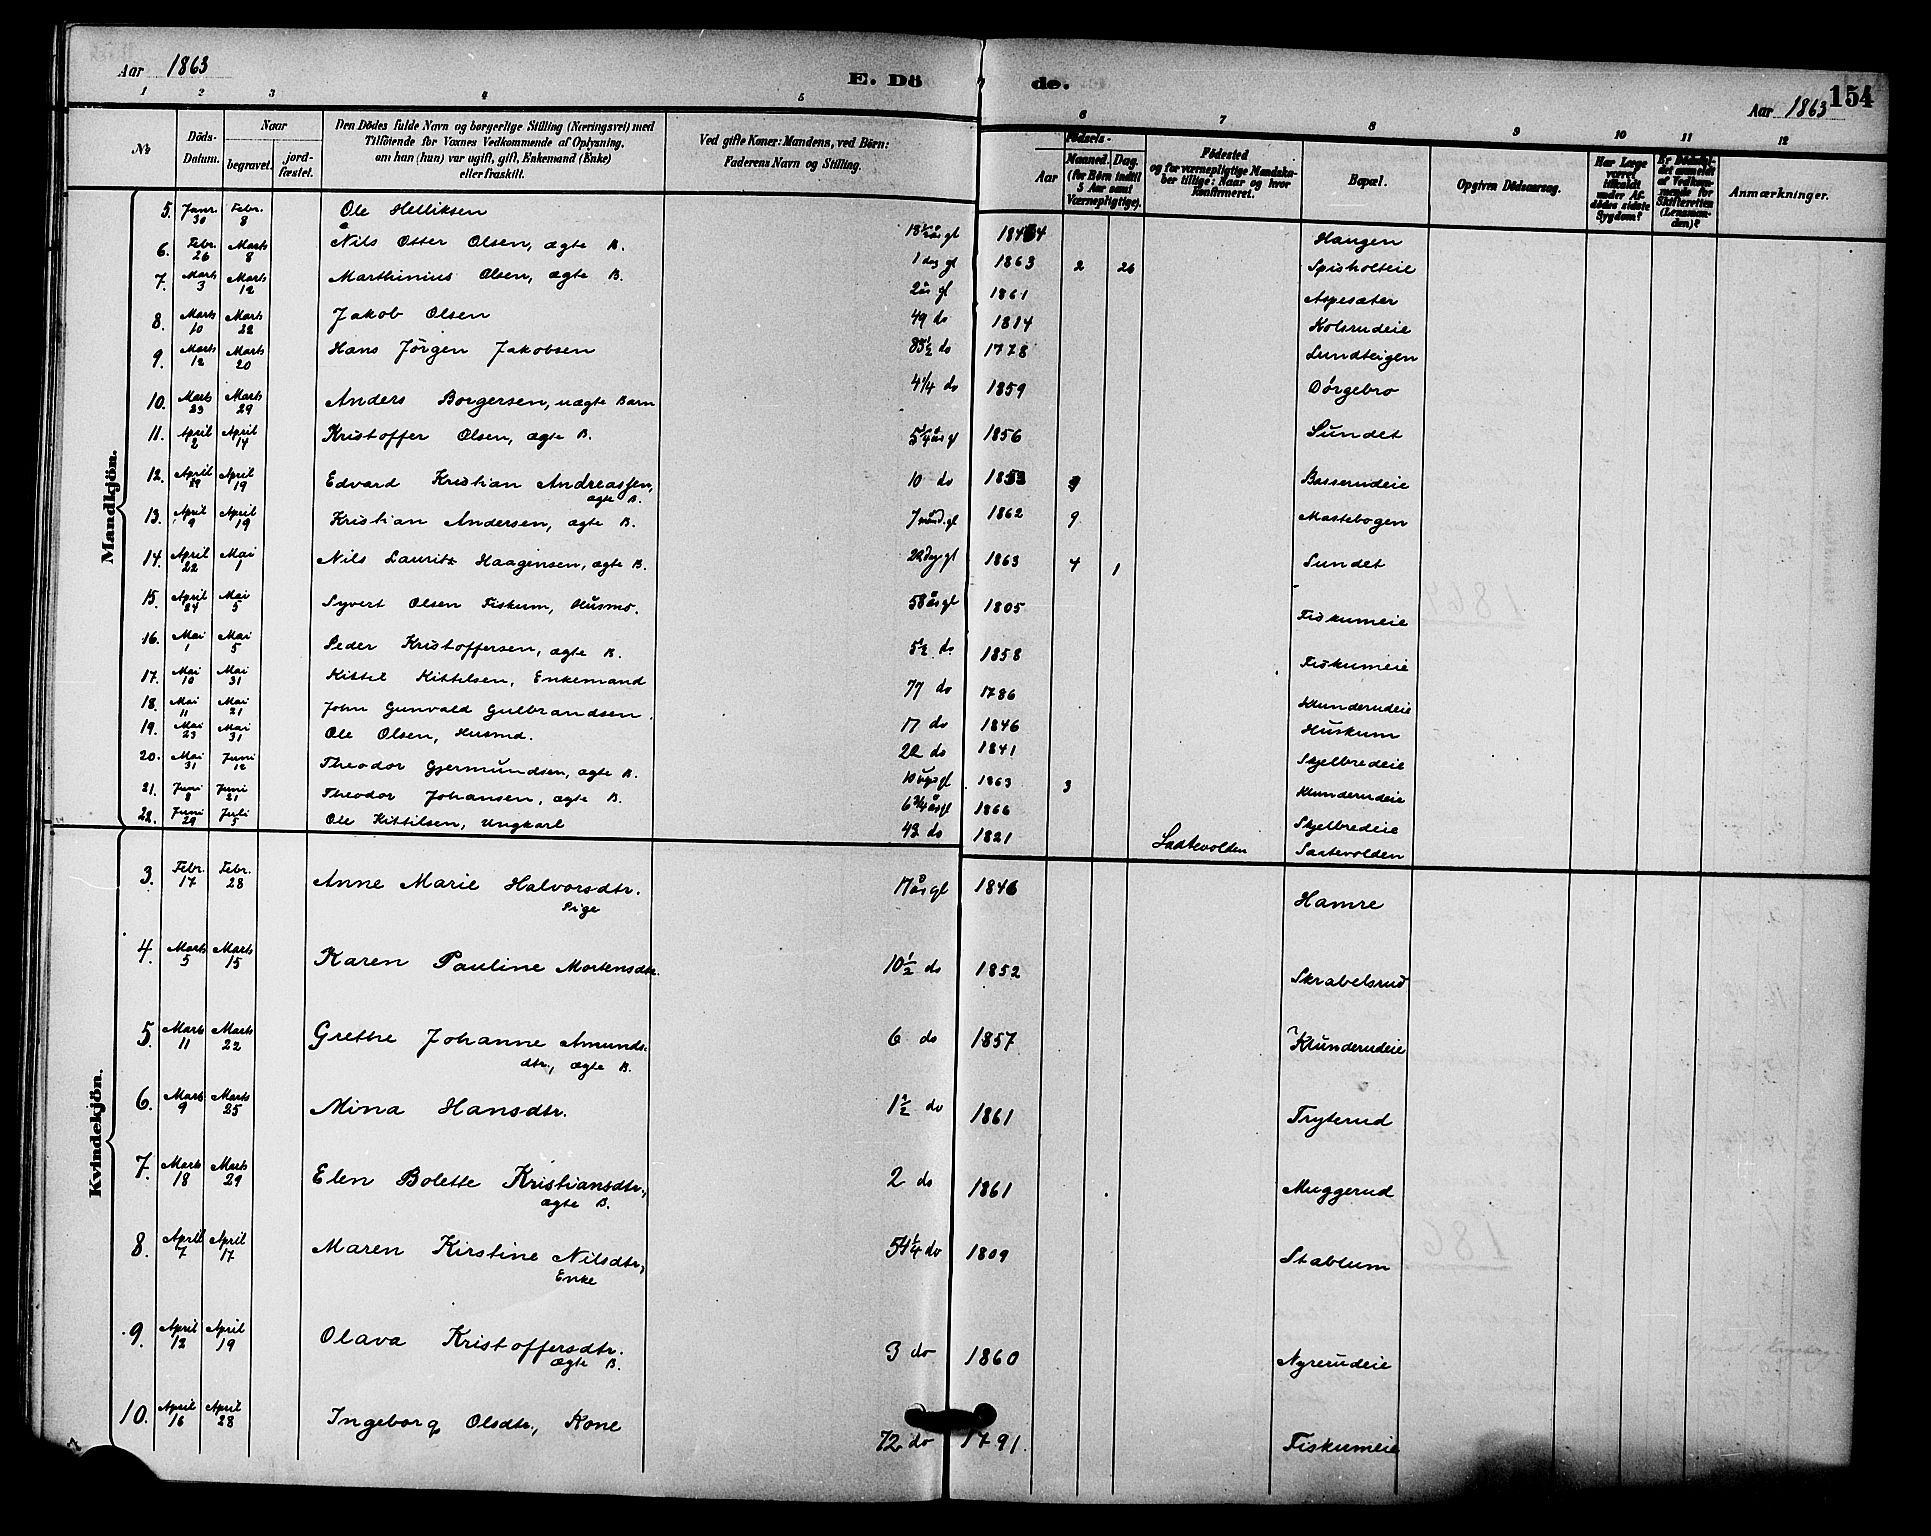 Aar 1863
E. Dö de.
Aar 1863 154
1 2 3 4 5 6 7 8 9 10 11 12
№ Döds-Datum. Naar begravet. jord-fæstet. Den Dödes fulde Navn og borgerlige Stilling (Næringsvei) med Tilföiende for Voxnes Vedkommende af Oplysning, om han (hun) var ugift, gift, Enkemand (Enke) eller fraskilt. Ved gifte Koner: Mandens, ved Börn: Faderens Navn og Stilling. Födsels- Aar Maaned. Dag. (for Börn indtil 5 Aar samt Værnepligtige). Födested og for værnepligtige Mandskaber tillige: Naar og hvor konfirmeret. Bopæl. Opgiven Dödsaarsag. Har Læge været tilkaldt under Afdödes sidste Sygdom? Er Dödsfaldet anmeldt af Vedkommende for Skifteretten (Lensmanden)? Anmærkninger.
Mandkjön.
5. Janr. 30 Febr. 8 Ole Helliksen 18½ år gl Haugen
6. Febr. 26 Marts 8 Nils Otter Olsen, ægte B. 1 dag gl 1863 2 26 Spisholteie
7. Marts 3 Marts 12 Marthinius Olsen, ægte B. 2 år gl 1861 Aspesæter
8. Marts 10 Marts 22 Jakob Olsen 49 do 1814 Kolsrudeie
9. Marts 12 Marts 20 Hans Jörgen Jakobsen 85½ do 1778 Lundteigen
10. Marts 23 Marts 29 Anders Borgersen, uægte Barn 4¼ do 1859 Dörgebro
11. April 2 April 14 Kristoffer Olsen, ægte B. år gl 1856 Sundet
12. April April 19 Edvard Kristian Andreassen, ægte B. 10 do Basserudeie
13. April 9 April 19 Kristian Andersen, ægte B. 7 månd. gl 1862 9 Mastebogen
14. April 22 Mai 1 Nils Lauritz Haagensen, ægte B. 22 dag gl 1863 4 1 Sundet
15. April 24 Mai 5 Syvert Olsen Fiskum, Husmd. 58 år gl 1805 Fiskumeie
16. Mai 1 Mai 5 Peder Kristoffersen, ægte B. do 1858 Fiskumeie
17. Mai 10 Mai 31 Kittil Kittilsen, Enkemand 77 do 1786 Klunderudeie
18. Mai 11 Mai 21 John Gunvald Gulbrandsen. 17 do 1846 Huskum
19. Mai 23 Mai 31 Ole Olsen, Husmd. 22 do 1841 Skjelbredeie
20. Mai 31 Juni 12 Theodor Gjermundsen, ægte B. 10 uger gl 1863 3 Klunderudeie
21. Juni 8 Juni 21 Theodor Johansen, ægte B. 6¾ år gl 1866 Skjelbredeie
22. Juni 29 Juli 5 Ole Kittilsen, Ungkarl 42 do 1821 Saatevolden Saatevolden
Kvindekjön.
3. Febr. 17 Febr. 28 Anne Marie Halvorsdtr. Pige 17 år gl 1846 Hamre
4. Marts 5 Marts 15 Karen Pauline Mortensdtr. 10½ do 1852 Skrabelsrud
5. Marts 11 Marts 22 Grethe Johanne Amundsdtr., ægte B. 6 do 1857 Klunderudeie
6. Marts 9 Marts 25 Mina Hansdtr. 1½ do 1861 Tryterud
7. Marts 18 Marts 29 Elen Bolette Kristiansdtr., ægte B. 2 do 1861 Muggerud
8. April 7 April 17 Maren Kirstine Nilsdtr., Enke 54¼ do 1809 Stablum
9. April 12 April 19 Olava Kristoffersdtr. ægte B. 3 do 1860 Nyrerudeie
10. April 16 April 28 Ingeborg Olsdtr., Kone 72 do 1791. Fiskumeie